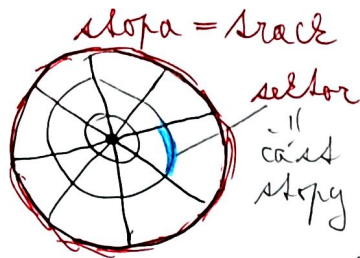 stopa = track
sektor
=
část
stopy